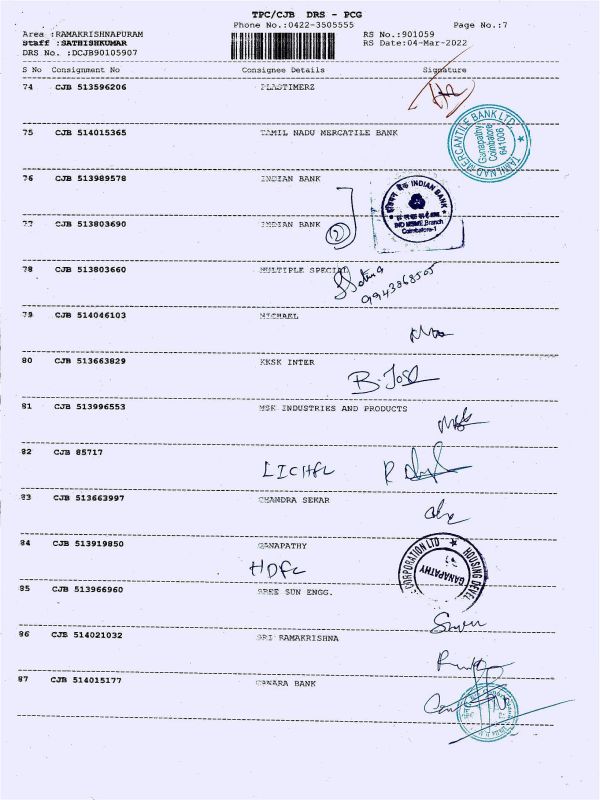 TPC/CJB DRS - PCG
Phone No.:0422-3505555 Page No.:7
Area :RAMAKRISHNAPURAM RS No.:901059
Staff :SATHISHKUMAR RS Date:04-Mar-2022
DRS No. :DCJB90105907
S No Consignment No Consignee Details Signature
74 CJB 513596206 PLASTIMERZ
75 CJB 514015365 TAMIL NADU MERCATILE BANK
TAMILNAD MERCANTILE BANK LTD.
Ganapathy
Coimbatore
641006
76 CJB 513989578 INDIAN BANK
इंडियन बैंक INDIAN BANK
IND MSME Branch
Coimbatore-1
77 CJB 513803690 INDIAN BANK
2
78 CJB 513803660 MULTIPLE SPECIAL
9943868505
79 CJB 514046103 MICHAEL
80 CJB 513663829 KKSK INTER
B. Jose
81 CJB 513996553 MSK INDUSTRIES AND PRODUCTS
82 CJB 85717
LICHFL
83 CJB 513663997 CHANDRA SEKAR
84 CJB 513919850 GANAPATHY
HDFC
HOUSING DEVEL
CORPORATION LTD
GANAPATHY
85 CJB 513966960 SREE SUN ENGG.
86 CJB 514021032 SRI RAMAKRISHNA
87 CJB 514015177 CANARA BANK